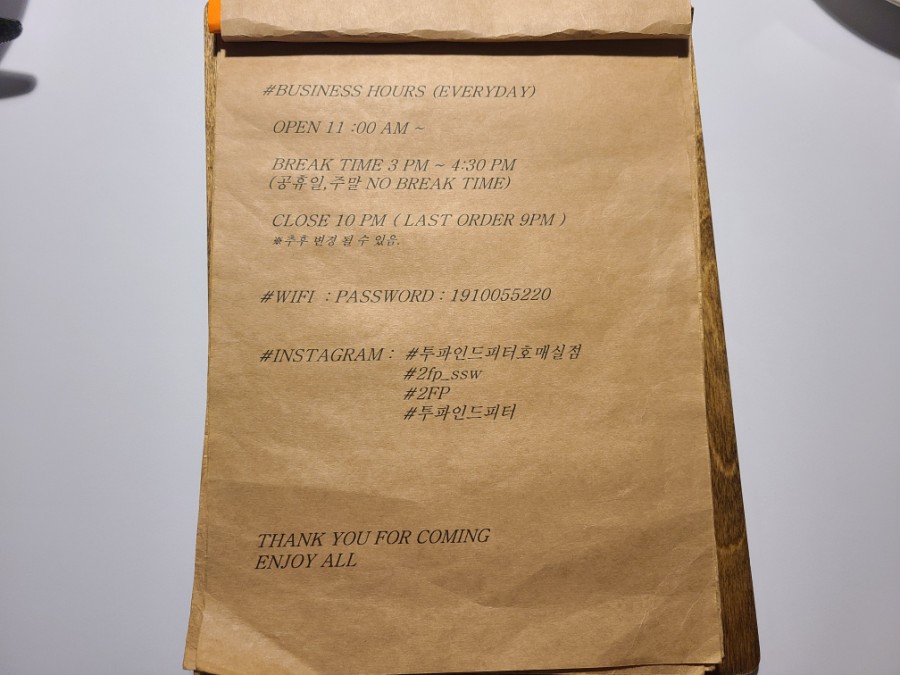 #BUSINESS HOURS (EVERYDAY)
OPEN 11 :00 AM ~
BREAK TIME 3 PM ~ 4:30 PM
(공휴일,주말 NO BREAK TIME)
CLOSE 10 PM ( LAST ORDER 9PM )
※추후 변경 될 수 있음.
#WIFI : PASSWORD : 1910055220
#INSTAGRAM : #투파인드피터호매실점
#2fp_ssw
#2FP
#투파인드피터
THANK YOU FOR COMING
ENJOY ALL